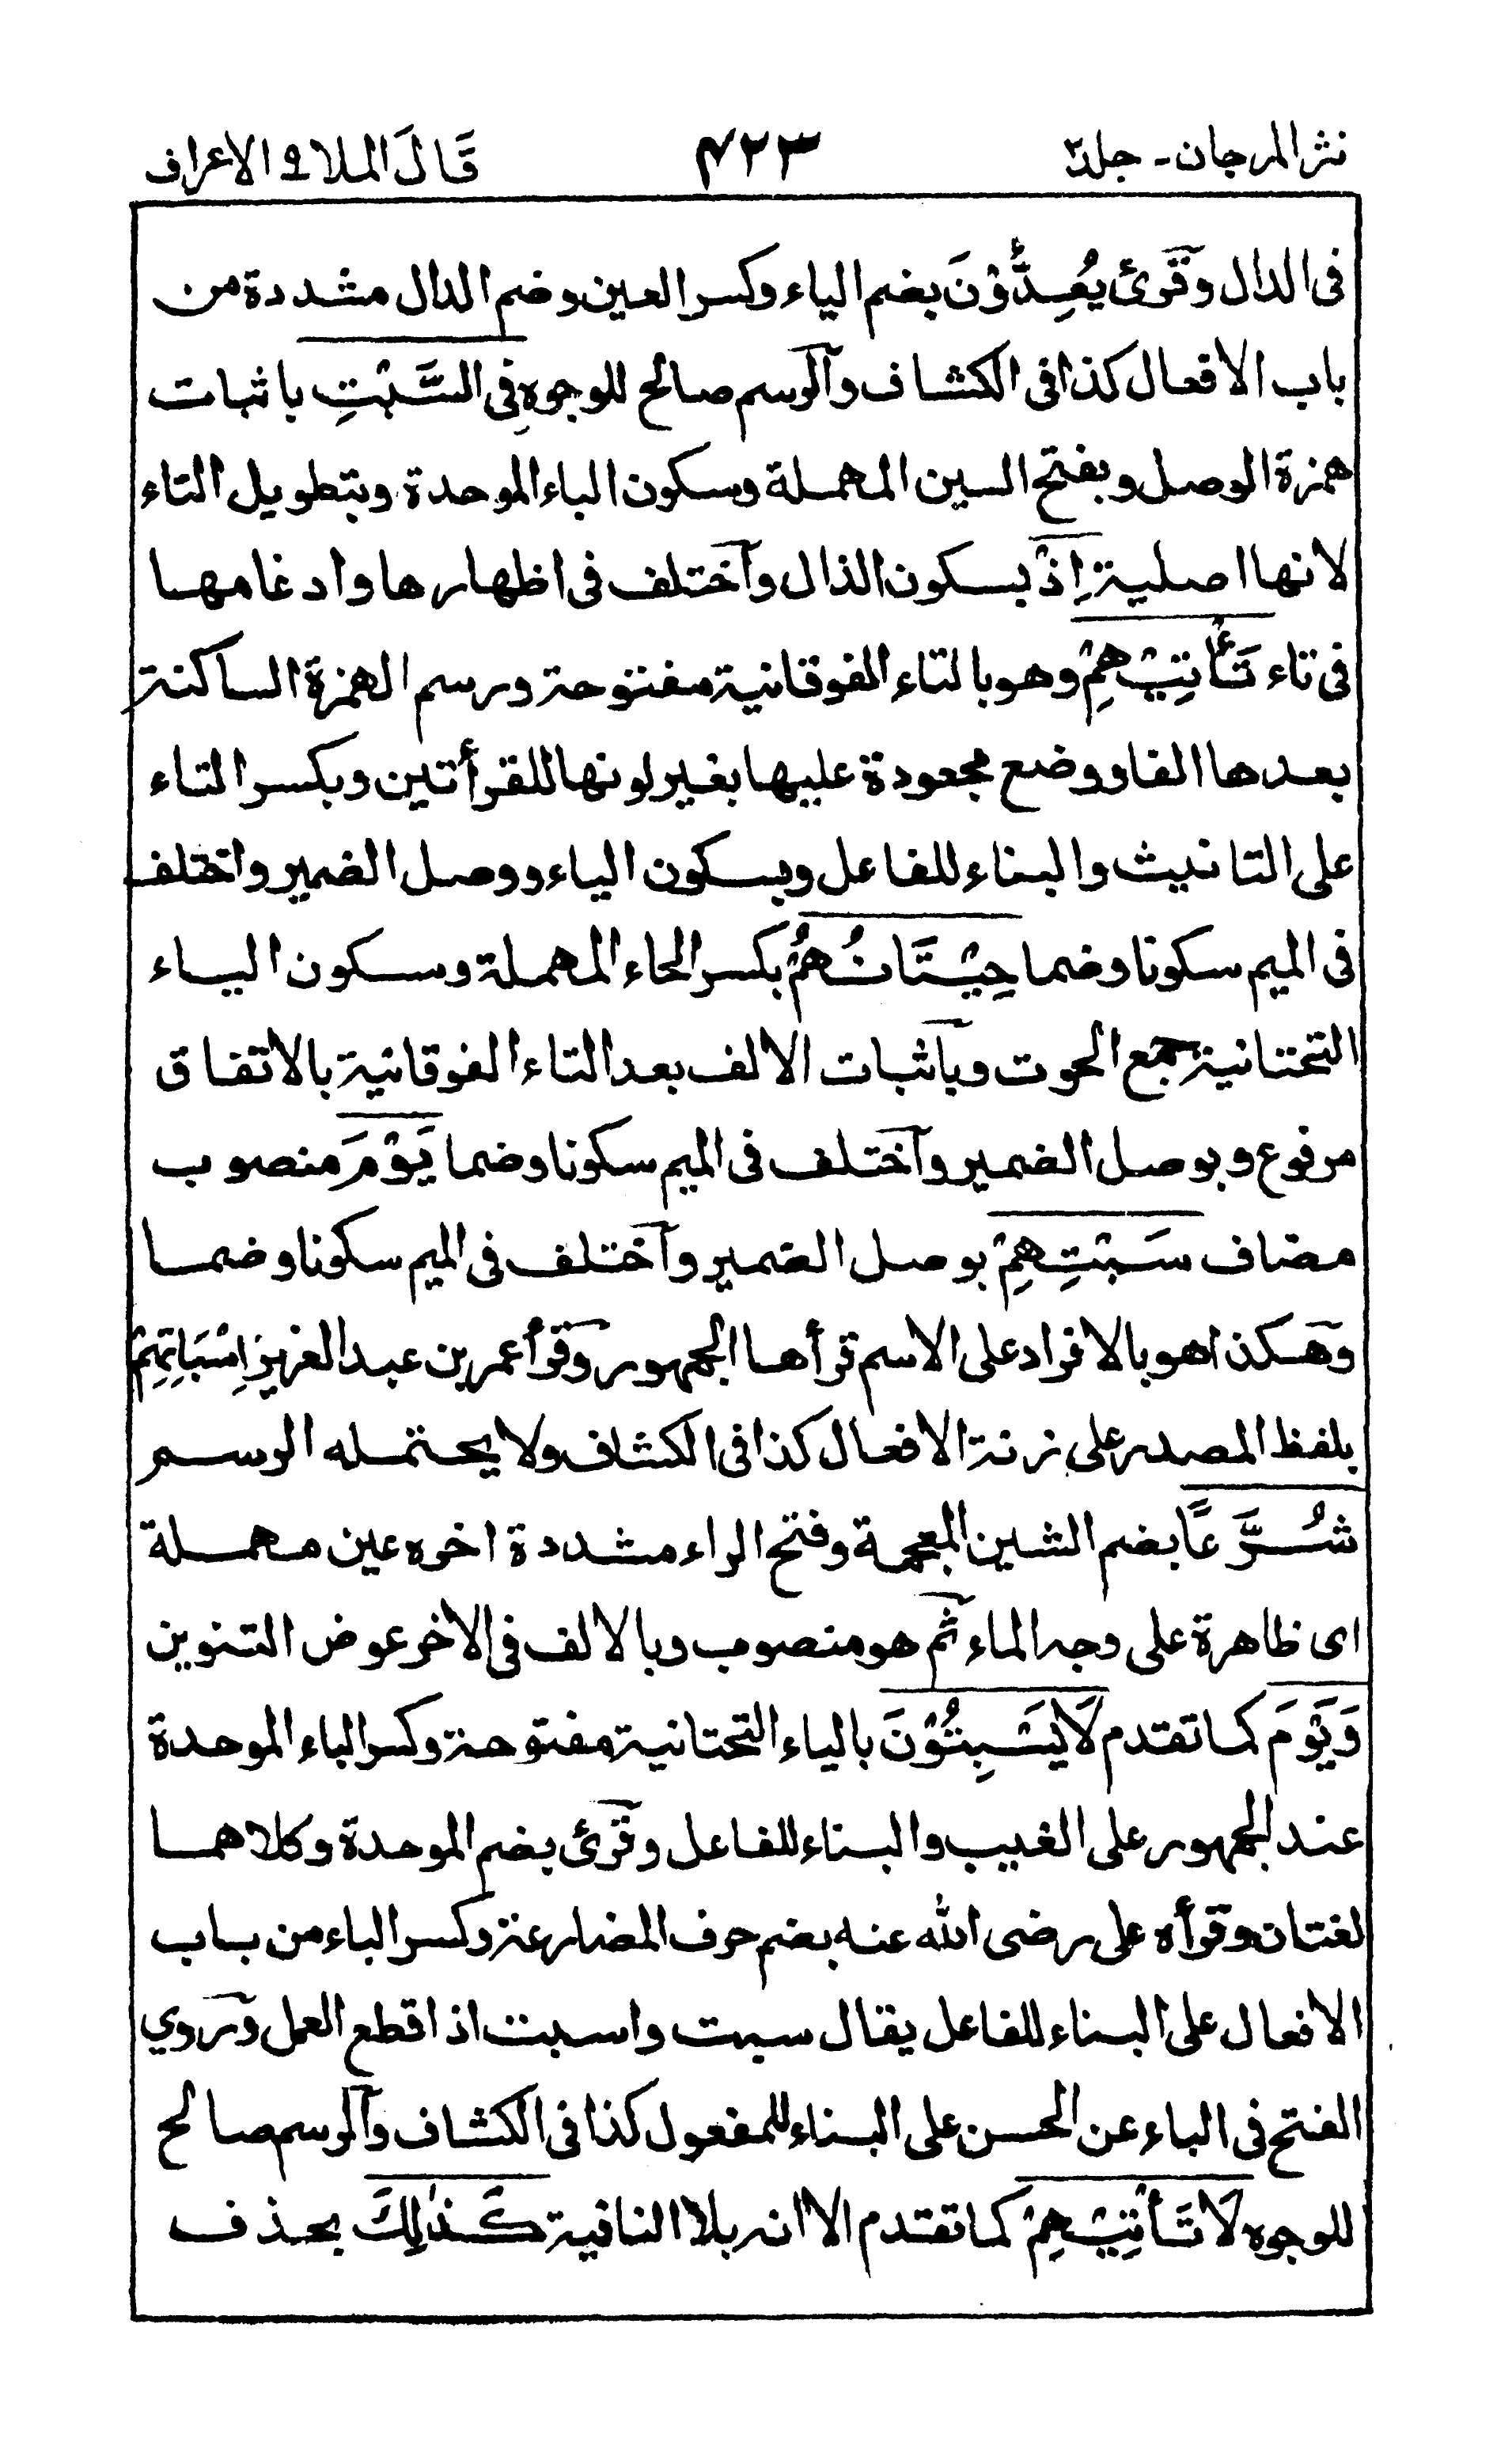 نثر المرجان - جلد٢ ٤٢٣ قَالَ الملا ٩ الاعراف
فى الدال وقرئ يُعِدُّوْنَ بضم الياء وكسر العين وضم الدال مشددة من
باب الافعال كذا فى الكشاف والرسم صالح للوجوه فِى السَّبْتِ باثبات
همزة الوصل وبفتح السين المهملة وسكون الباء الموحدة وبتطويل التاء
لانها اصلية اِذْ بسكون الذال واختلف فى اظهارها وادغامها
فى تاء تَأْتِيْهِمْ وهو بالتاء الفوقانية مفتوحة ورسم الهمزة الساكنة
بعدها الفا ووضع مجعودة عليها بغير لونها للقرأتين وبكسر التاء
على التانيث والبناء للفاعل وبسكون الياء ووصل الضمير واختلف
فى الميم سكونا وضما حِيْتَانُهُمْ بكسر الحاء المهملة وسكون الياء
التحتانية جمع الحوت وباثبات الالف بعد التاء الفوقانية بالاتفاق
مرفوع وبوصل الضمير واختلف فى الميم سكونا وضما يَوْمَ منصوب
مضاف سَبْتِهِمْ بوصل الضمير واختلف فى الميم سكونا وضما
وهكذا هو بالافراد على الاسم قرأها الجمهور وقرأ عمر بن عبد العزيز اِسْبَاتِهِمْ
بلفظ المصدر على زنة الافعال كذا فى الكشاف ولا يحتمله الرسم
شُرَّعًا بضم الشين المعجمة وفتح الراء مشددة اخره عين مهملة
اى ظاهرة على وجه الماء ثم هو منصوب وبالالف فى الاخر عوض التنوين
وَيَوْمَ كما تقدم لَا يَسْبِتُوْنَ بالياء التحتانية مفتوحة وكسر الباء الموحدة
عند الجمهور على الغيب والبناء للفاعل وقرئ بضم الموحدة وكلاهما
لغتان وقرأه على رضى الله عنه بضم حرف المضارعة وكسر الباء من باب
الافعال على البناء للفاعل يقال سبت واسبت اذا قطع العمل وروي
الفتح فى الباء عن الحسن على البناء للمفعول كذا فى الكشاف والرسم صالح
للوجوه لَا تَأْتِيْهِمْ كما تقدم الا انه بلا النافية كَذٰلِكَ بحذف